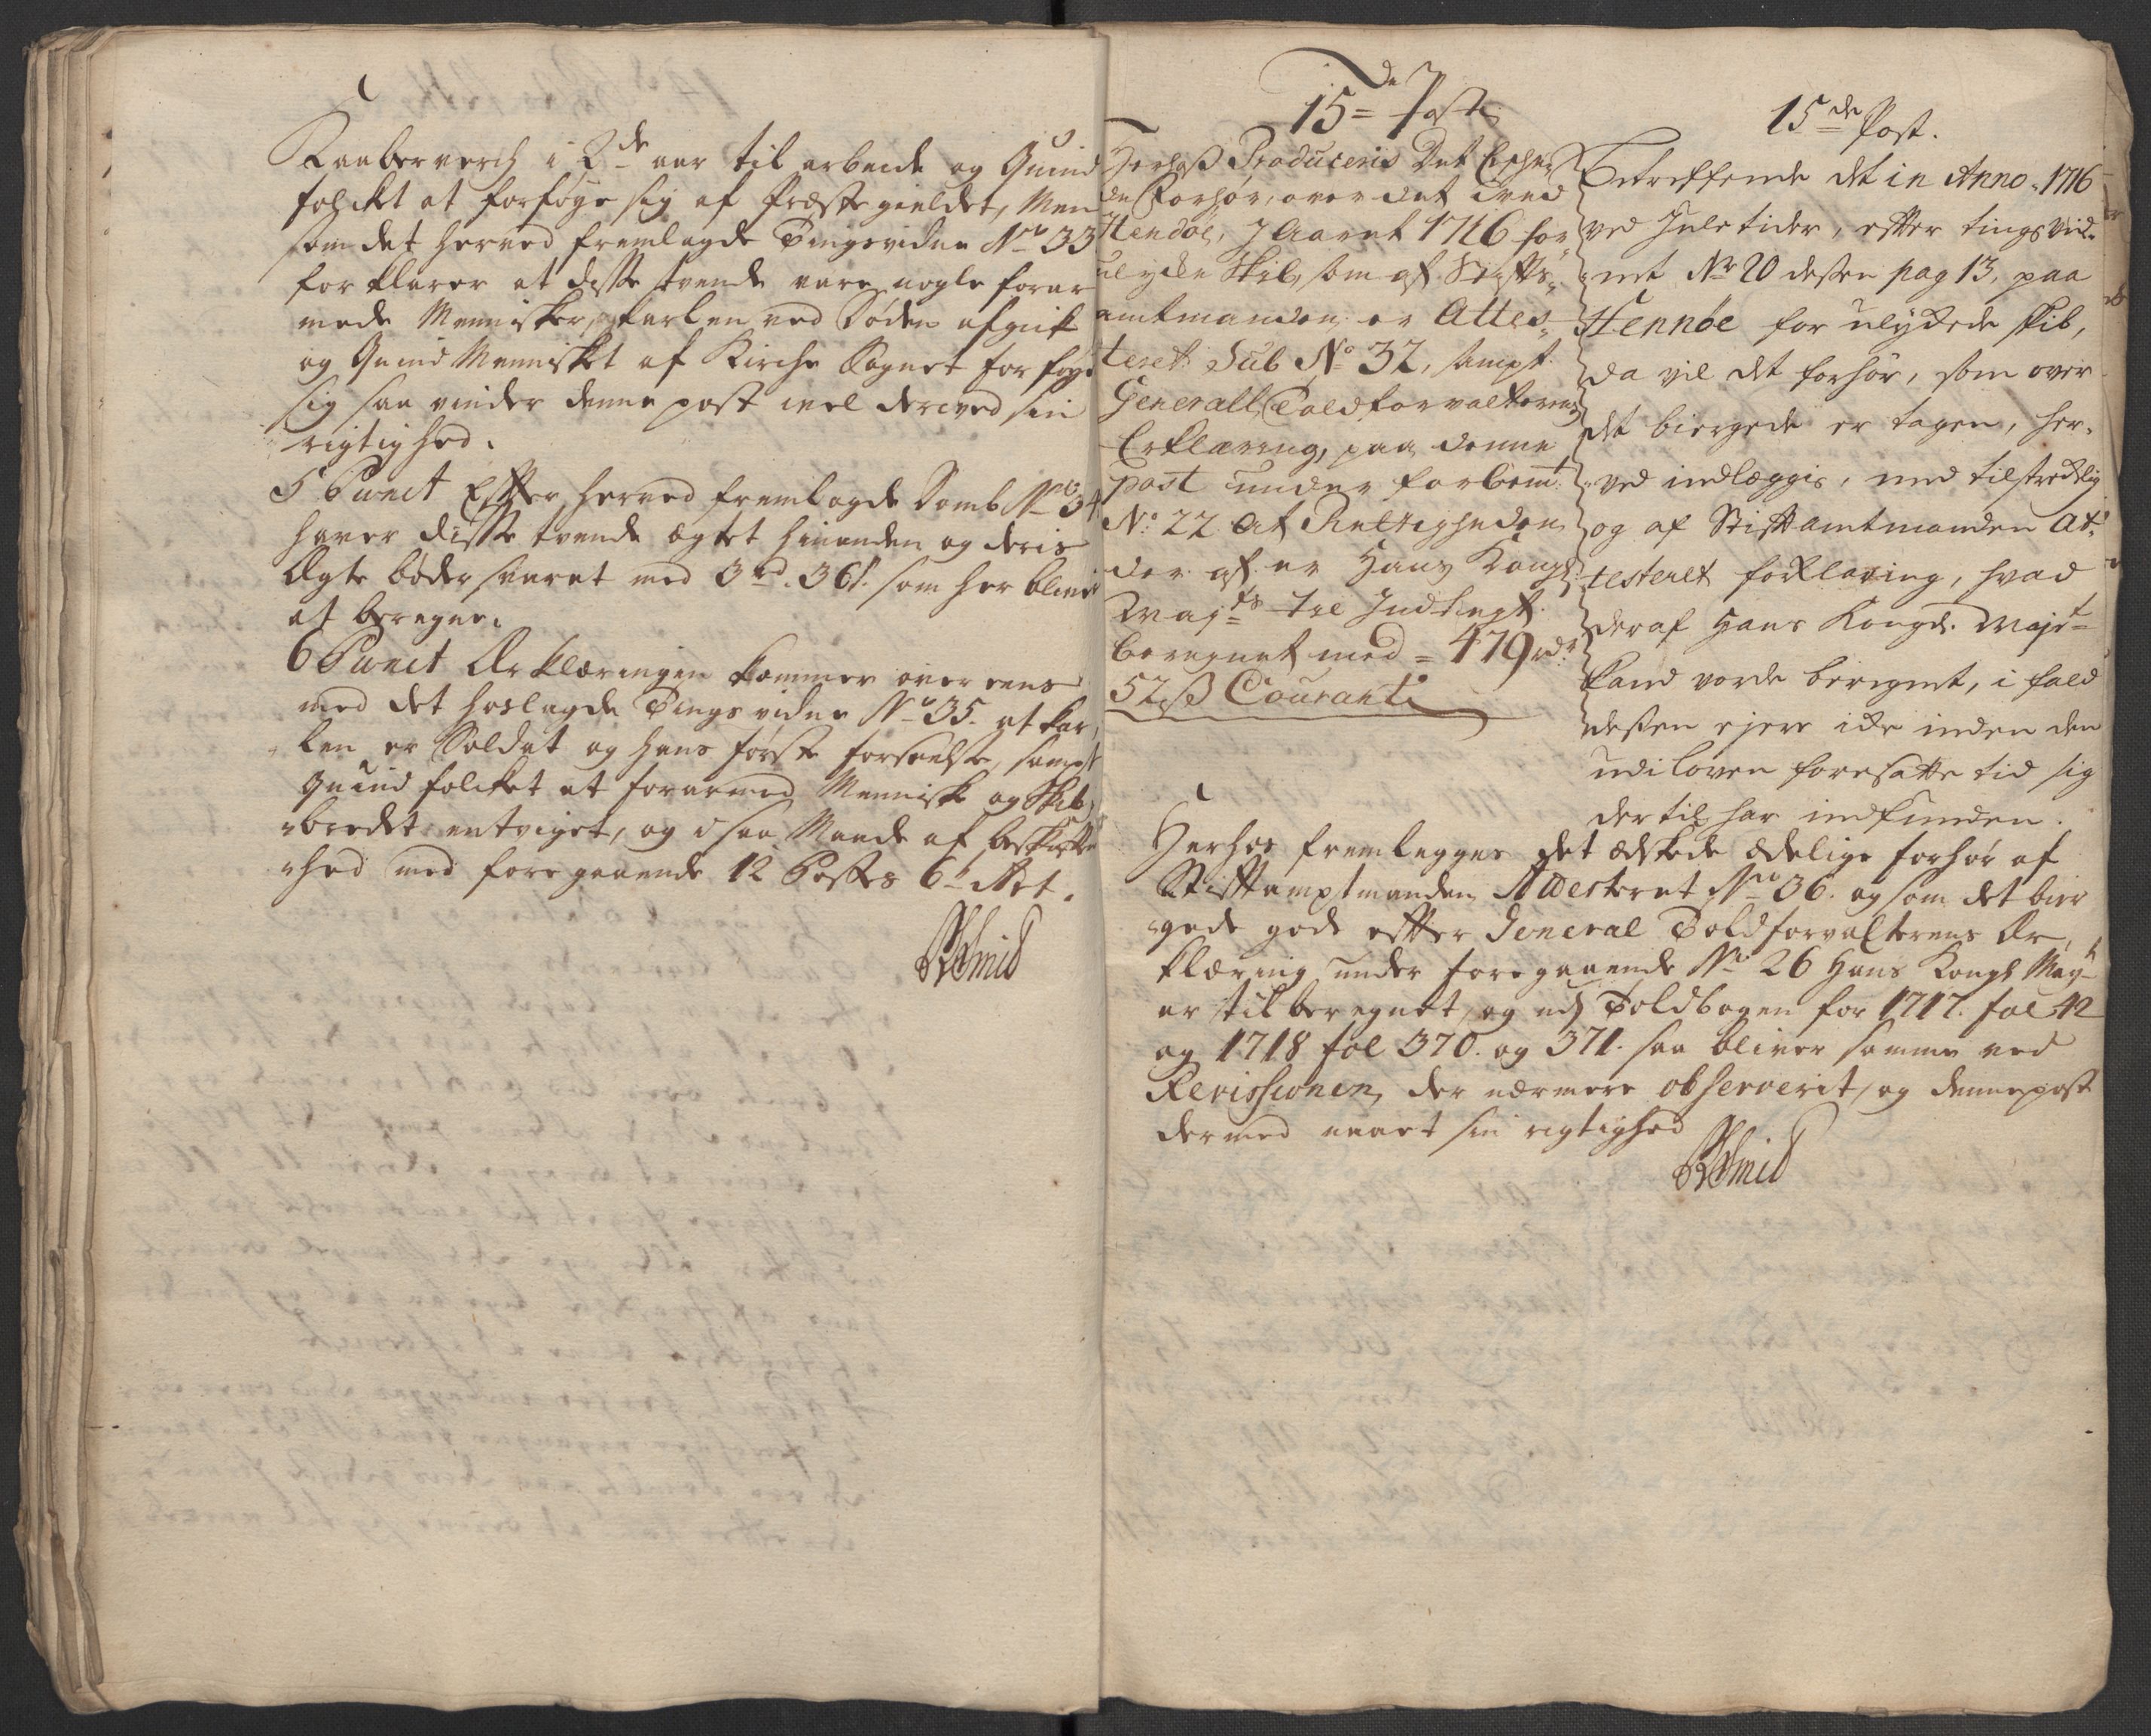 Kaaberverch i 2de aar til arbeide og Quind
folchet at forføye sig af Præstegieldet, Men
som det herved fremlagde Tingsvidne No 33
forklarer at disse tvende vare nogle forar
mede Mennisker, karlen ved Døden afgik
og Quind Mennisket af Kirche Sognet forføyet
sig saa vinder denne post vel derved sin
rigtighed.
5 Punct Effter herved fremlagde Domb No 34
haver disse tvende ægtet hinanden og deris
Ægte bøder svaret med 3 rd. 36 s. som her bliver
at beregne.
6 Punct Erklæringen kommer over eens
med det hoslagde Tings vidne No 35. at kar,
len er Soldat og hans første forseelse, sampt
Quind folchet et forarmed Menniske og
bredet entviget, og i saa Maade af beskaffen
hed med foregaaende 12 Postes 6te Art.
Schmid
15de Post
Herhoß Produceris Det Eschen
de Forhør, over det ved
Hendøe, J Aaret 1716 for
ulyche Skib, som af Stifts
amtmanden er Attes,
teret Sub No 32, sampt
Generall Toldforvalterens
Erklæring, paa denne
post under forbemt
No 22 At Rettigheden
der af er Hans Kongl:
Mayts til Indtegt
beregnet med = 479 rdr
52 ß Courant
15de Post.
Betreffende det in Anno 1716
ved Jule tider, effter tingsvid
net No 20 dessen pag 13, paa
Hennøe for ulychede skib,
da vil det forhør, som over
det biergede er tagen, her,
ved indlæggis, med tilstrechelig
og af Stiftamtmanden At,
testeret forklaring, hvad
deraf Hans Kongl. Mayt
kand vorde beregnet, i fald
dessen ejere icke inden den
udi loven foresatte tid sig
dertil har indfunden.
Herhos fremlegges det ædskede ædelige forhør af
Stifftamptmanden Attesteret No 36. og som det bier
gede gods effter General Toldforvalterens Er,
klæring under foregaaende No 26 Hans Kongl Mayt
er til beregnet, og udj Toldbogen for 1717. fol 42
og 1718 fol 370. og 371. saa bliver samme ved
Revissionen, der nærmere observerit, og denne post
dermed naaet sin rigtighed
Schmid